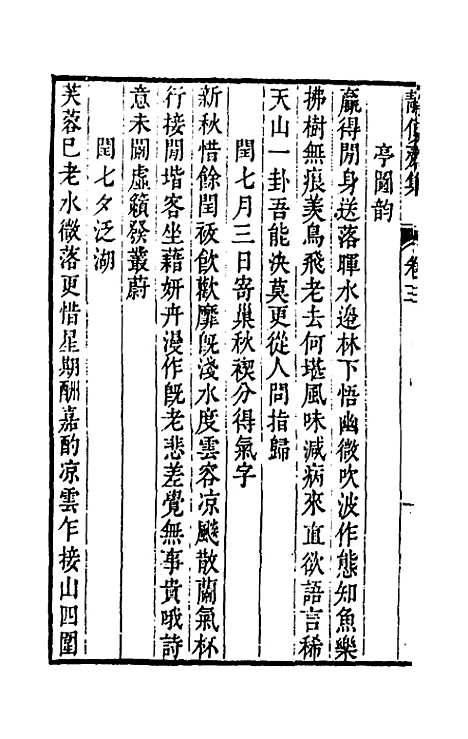 亭圖韵
羸得閒身送落暉水邉林下悟幽微吹波作態知魚樂
拂樹無痕美鳥飛老去何堪風味減病來直欲語言稀
天山一卦吾能決莫更從人問指歸
閏七月三日寄巢秋禊分得氣字
新秋惜餘閏祓飲歡靡旣淺水度雲容凉颸散蘭氣杯
行接閒堦客坐藉妍卉漫作旣老悲差覺無事貴哦詩
意未闌虛籟發叢蔚
閏七夕泛湖
芙蓉已老水微落更惜星期酬嘉酌凉雲乍接山四圍
集 卷三